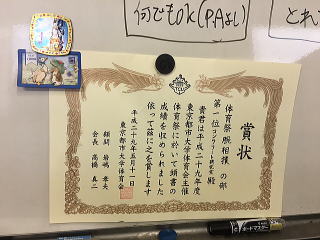 何でもok(P.Aよし)
とれ
賞状
体育祭 腕相撲 の部
第一位 コンクリート研究室 殿
貴君は平成二十九年度
東京都市大学体育会主催
体育祭に於いて頭書の
成績を収められました
依って茲に之を賞します
平成二十九年五月十一日
東京都市大学体育会
顧問 岩嶋 孝夫
会長 高橋 真二
ボードマスター